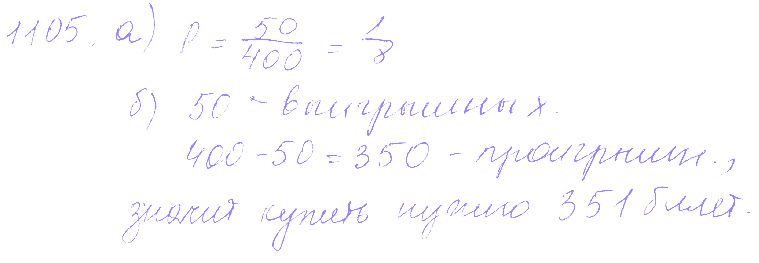 1105. а) P = 50/400 = 1/8
б) 50 - выигрышных.
400 - 50 = 350 - проигрышн.,
значит купить нужно 351 билет.